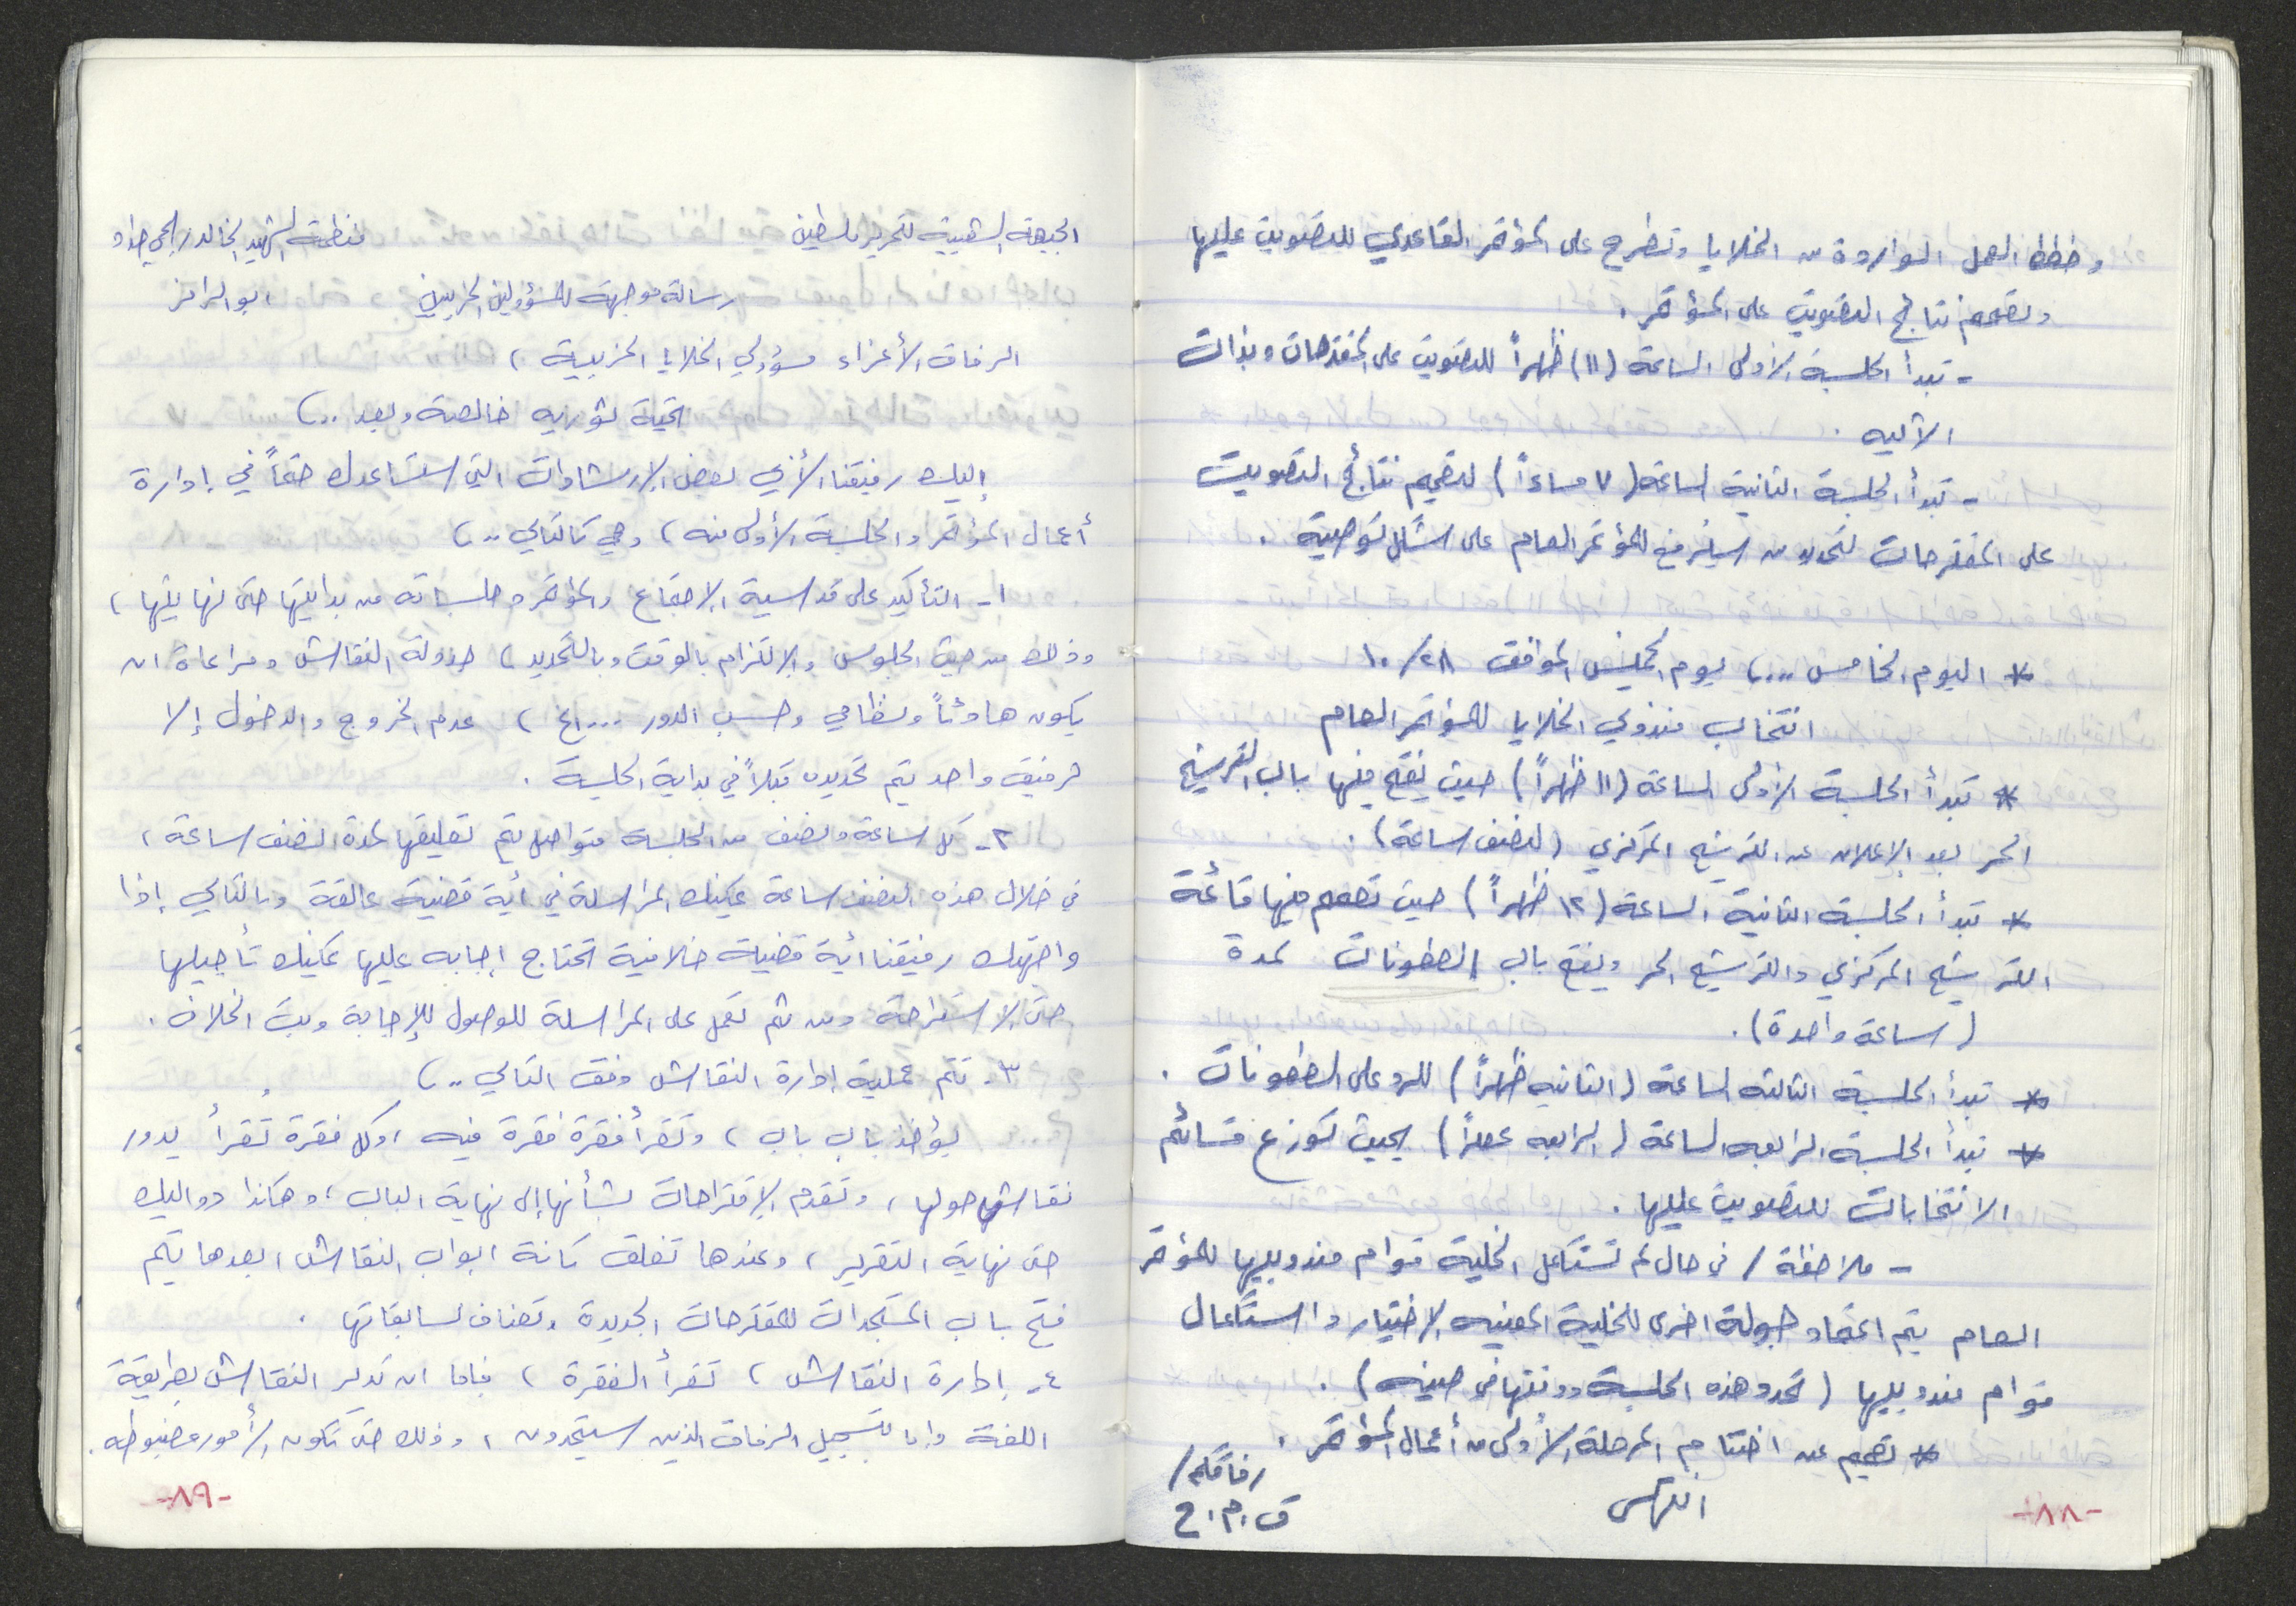 وخطط العمل الواردة من الخلايا وتطرح على المؤتمر القاعدي للتصويت عليها
وتعمم نتائج التصويت على المؤتمر.
- تبدأ الجلسة الأولى الساعة (١١) ظهراً للتصويت على المقترحات وبذات
الآليه .
- تبدأ الجلسة الثانية الساعة (٧ مساءاً) لتعميم نتائج التصويت
على المقترحات لتحديد من سيُرفع للمؤتمر العام على شكل توصية .
* اليوم الخامس ...، يوم الخميس الموافق ٢٨/١٠
انتخاب مندوبي الخلايا للمؤتمر العام
* تبدأ الجلسة الأولى الساعة (١١ ظهراً) حيث يفتح فيها باب الترشيح
الحر بعد الإعلان عن الترشيح المركزي (لنصف ساعة) .
* تبدأ الجلسة الثانية الساعة (١٢ ظهراً) حيث تعمم فيها قائمة
الترشيح المركزي والترشيح الحر ويفتح باب الطعونات لمدة
(ساعة واحدة).
* تبدأ الجلسة الثالثه الساعة (الثانيه ظهراً) للرد على الطعونات .
* تبدأ الجلسة الرابعه الساعة (الرابعه عصراً) بحيث توزع قسائم
الانتخابات للتصويت عليها .
- ملاحظة / في حال لم تستكمل الخلية قوام مندوبيها للمؤتمر
العام يتم اعتماد جولة اخرى للخلية المعنيه لإختيار واستكمال
قوام مندوبيها (تحدد هذه الجلسة ووقتها في حينه) .
* تعميم عن اختتام المرحلة الأولى من أعمال المؤتمر .
رفاقكم/
انتهى
ق.م.ح
-٨٨-
الجبهة الشعبية لتحرير فلسطين
منظمة الشهيد الخالد
رسالة موجهة للمسؤولين الحزبيين
ابو الرامز
الرفاق الأعزاء مسؤولي الخلايا الحزبية ،
تحية ثوريه خالصة وبعد ..،
إليك رفيقنا الأبي بعض الإرشادات التي ستساعدك حتماً في إدارة
أعمال المؤتمر والجلسة الأولى منه ، وهي كالتالي ..،
١- التأكيد على قدسية الإجتماع والمؤتمر وجلساته من بدايتها حتى نهايتها ،
وذلك من حيث الجلوس والإلتزام بالوقت وبالتحديد ، جدولة النقاش ومراعاة ان
يكون هادئاً ونظامي وحسب الدور ...الخ ، عدم الخروج والدخول إلا
لرفيق واحد يتم تحديده قبلاً في بداية الجلسة .
٢- كل ساعة ونصف من الجلسة متواصل يتم تعليقها لمدة نصف ساعة ،
في خلال هذه النصف ساعة يمكنك المراسلة في أية قضية عالقة وبالتالي إذا
واجهتك رفيقنا أية قضية خلافية تحتاج إجابه عليها يمكنك تأجيلها
حتى الاستراحة ومن ثم تعمل على المراسلة للوصول للإجابة وبت الخلاف .
٣- تتم عملية إدارة النقاش وفق التالي ..،
يؤخذ باب باب ، وتقرأ فقرة فقرة فيه ، وكل فقرة تُقرأ يدور
نقاش حولها ، وتقدم الإقتراحات بشأنها إلى نهاية الباب ، وهكذا دواليك
حتى نهاية التقرير ، وعندها تغلق كافة ابواب النقاش ، بعدها يتم
فتح باب المستجدات للمقترحات الجديدة وتضاف لسابقاتها .
٤- إدارة النقاش ، تقرأ الفقرة ، فإما ان تدير النقاش بطريقة
اللفة وإما بتسجيل الرفاق الذين سيتحدثون ، وذلك حتى تكون الأمور مضبوطه .
-٨٩-